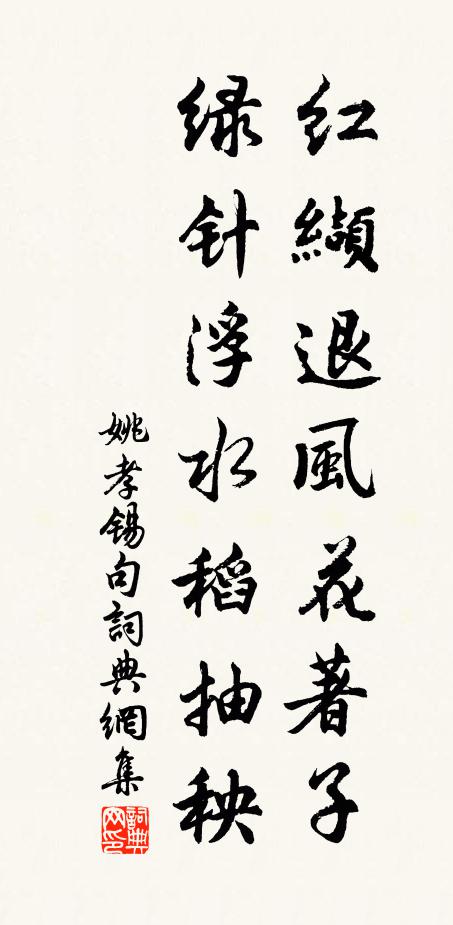 红纈退風花著子
绿针浮水稻抽秧
姚孝锡句詞典網集
詞典网印